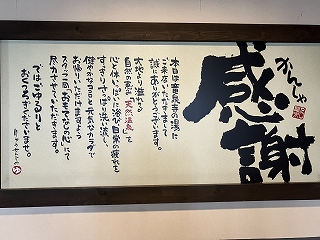 かんしゃ
感謝
本日は竜泉寺の湯に
ご来店いただきまして
誠にありがとうございます。
大地より溢れる
自然の恵み「天然温泉」を
心と体いっぱいに浴び日常の疲れを
すっきりさっぱり洗い流し、
健やかなココロと元気なカラダで
お帰りいただけますよう
スタッフ一同、おもてなしの心にて
尽力させていただきます。
ではごゆるりと
おくつろぎくださいませ。